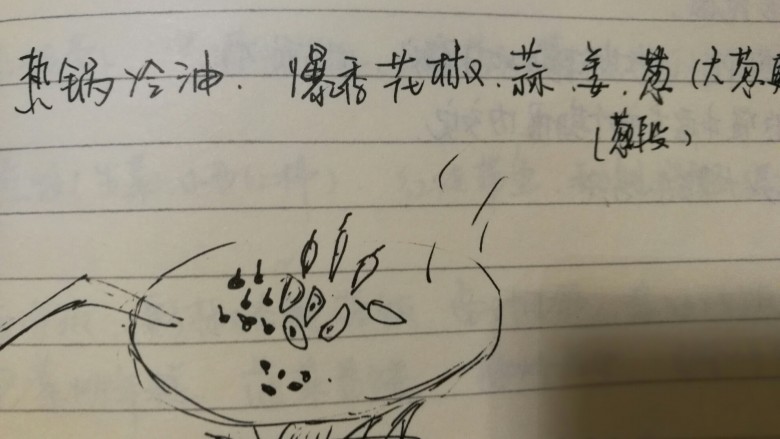 热锅冷油. 爆香花椒.蒜.姜.葱(大葱
(葱段)